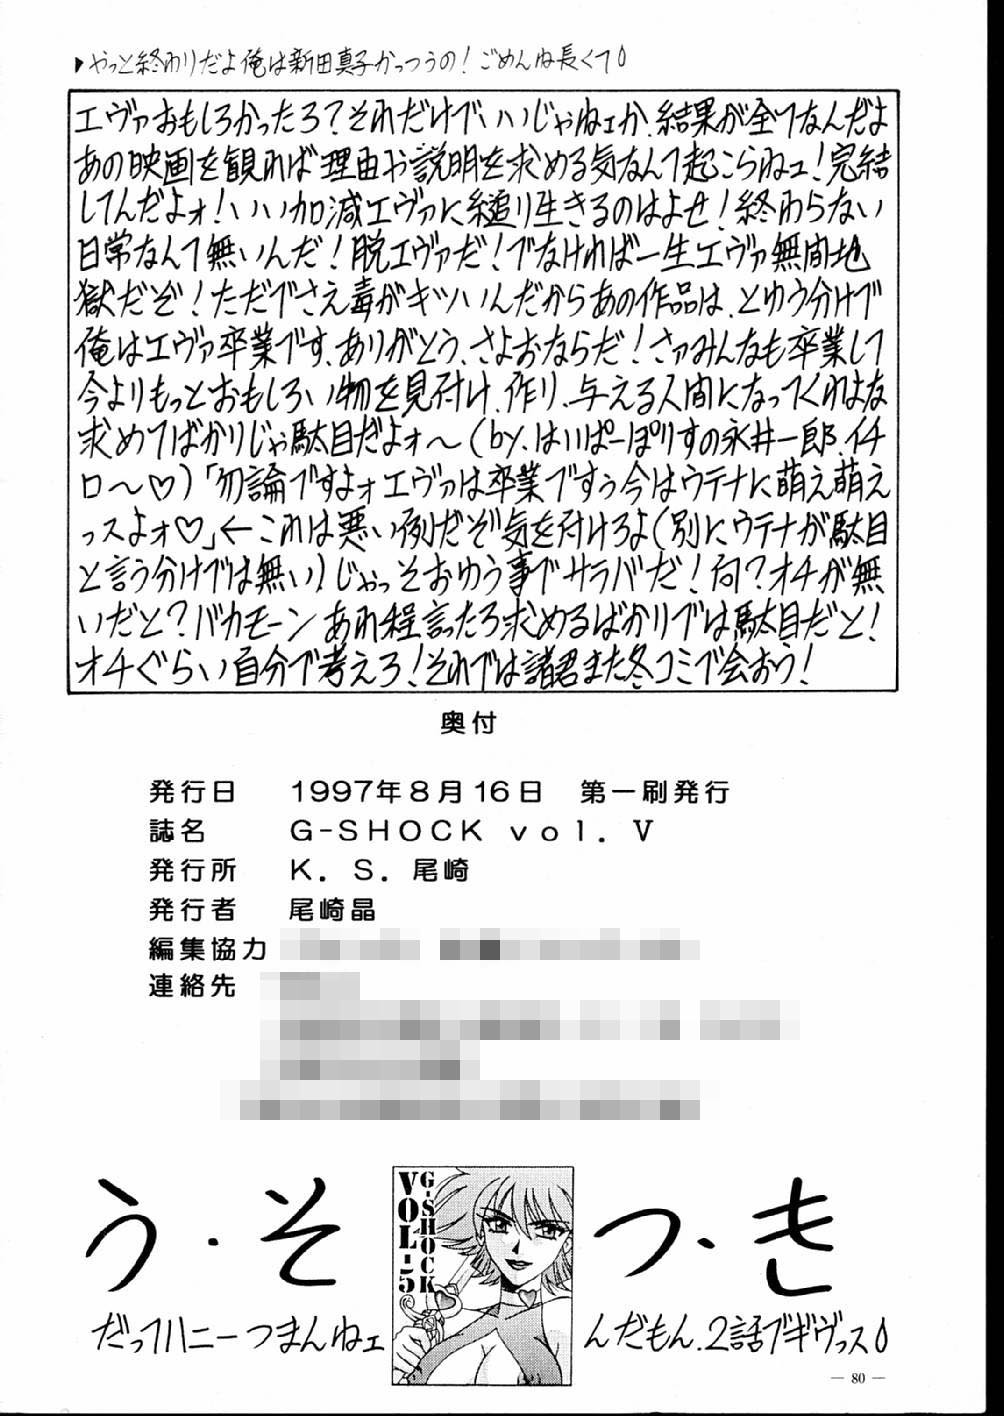 ▶やっと終わりだよ俺は新田真子かっつうの！ごめんね長くて
エヴァおもしろかったろ？それだけでいいじゃねェか、結果が全てなんだよ
あの映画を観れば理由や説明を求める気なんて起こらねェ！完結
してんだよォ！いいい加減エヴァに縋り生きるのはよせ！終わらない
日常なんて無いんだ！脱エヴァだ！でなければ一生エヴァ無間地
獄だぞ！ただでさえ毒がキツいんだからあの作品は、とゆう分けで
俺はエヴァ卒業です、ありがとう、さよおならだ！さァみんなも卒業して
今よりもっとおもしろい物を見付け、作り、与える人間になってくれはな
求めてばかりじゃ駄目だよォ〜（by、はいぱーぽりすの永井一郎、イチ
ロ〜♡）「勿論ですよォエヴァは卒業ですぅ今はウテナに萌え萌え
っスよォ♡」←これは悪い例だぞ気を付けろよ（別にウテナが駄目
と言う分けでは無い）じゃっそおゆう事でサラバだ！何？オチが無
いだと？バカモーンあれ程言ったろ求めるばかりでは駄目だと！
オチぐらい自分で考えろ！それでは諸君また冬コミで会おう！
奥付
発行日　1997年8月16日　第一刷発行
誌名　G-SHOCK vol. V
発行所　K. S. 尾崎
発行者　尾崎晶
編集協力
連絡先
う・そ つ・き
G-SHOCK
VOL-5
だってハニーつまんねェ んだもん、2話でギヴっス
— 80 —